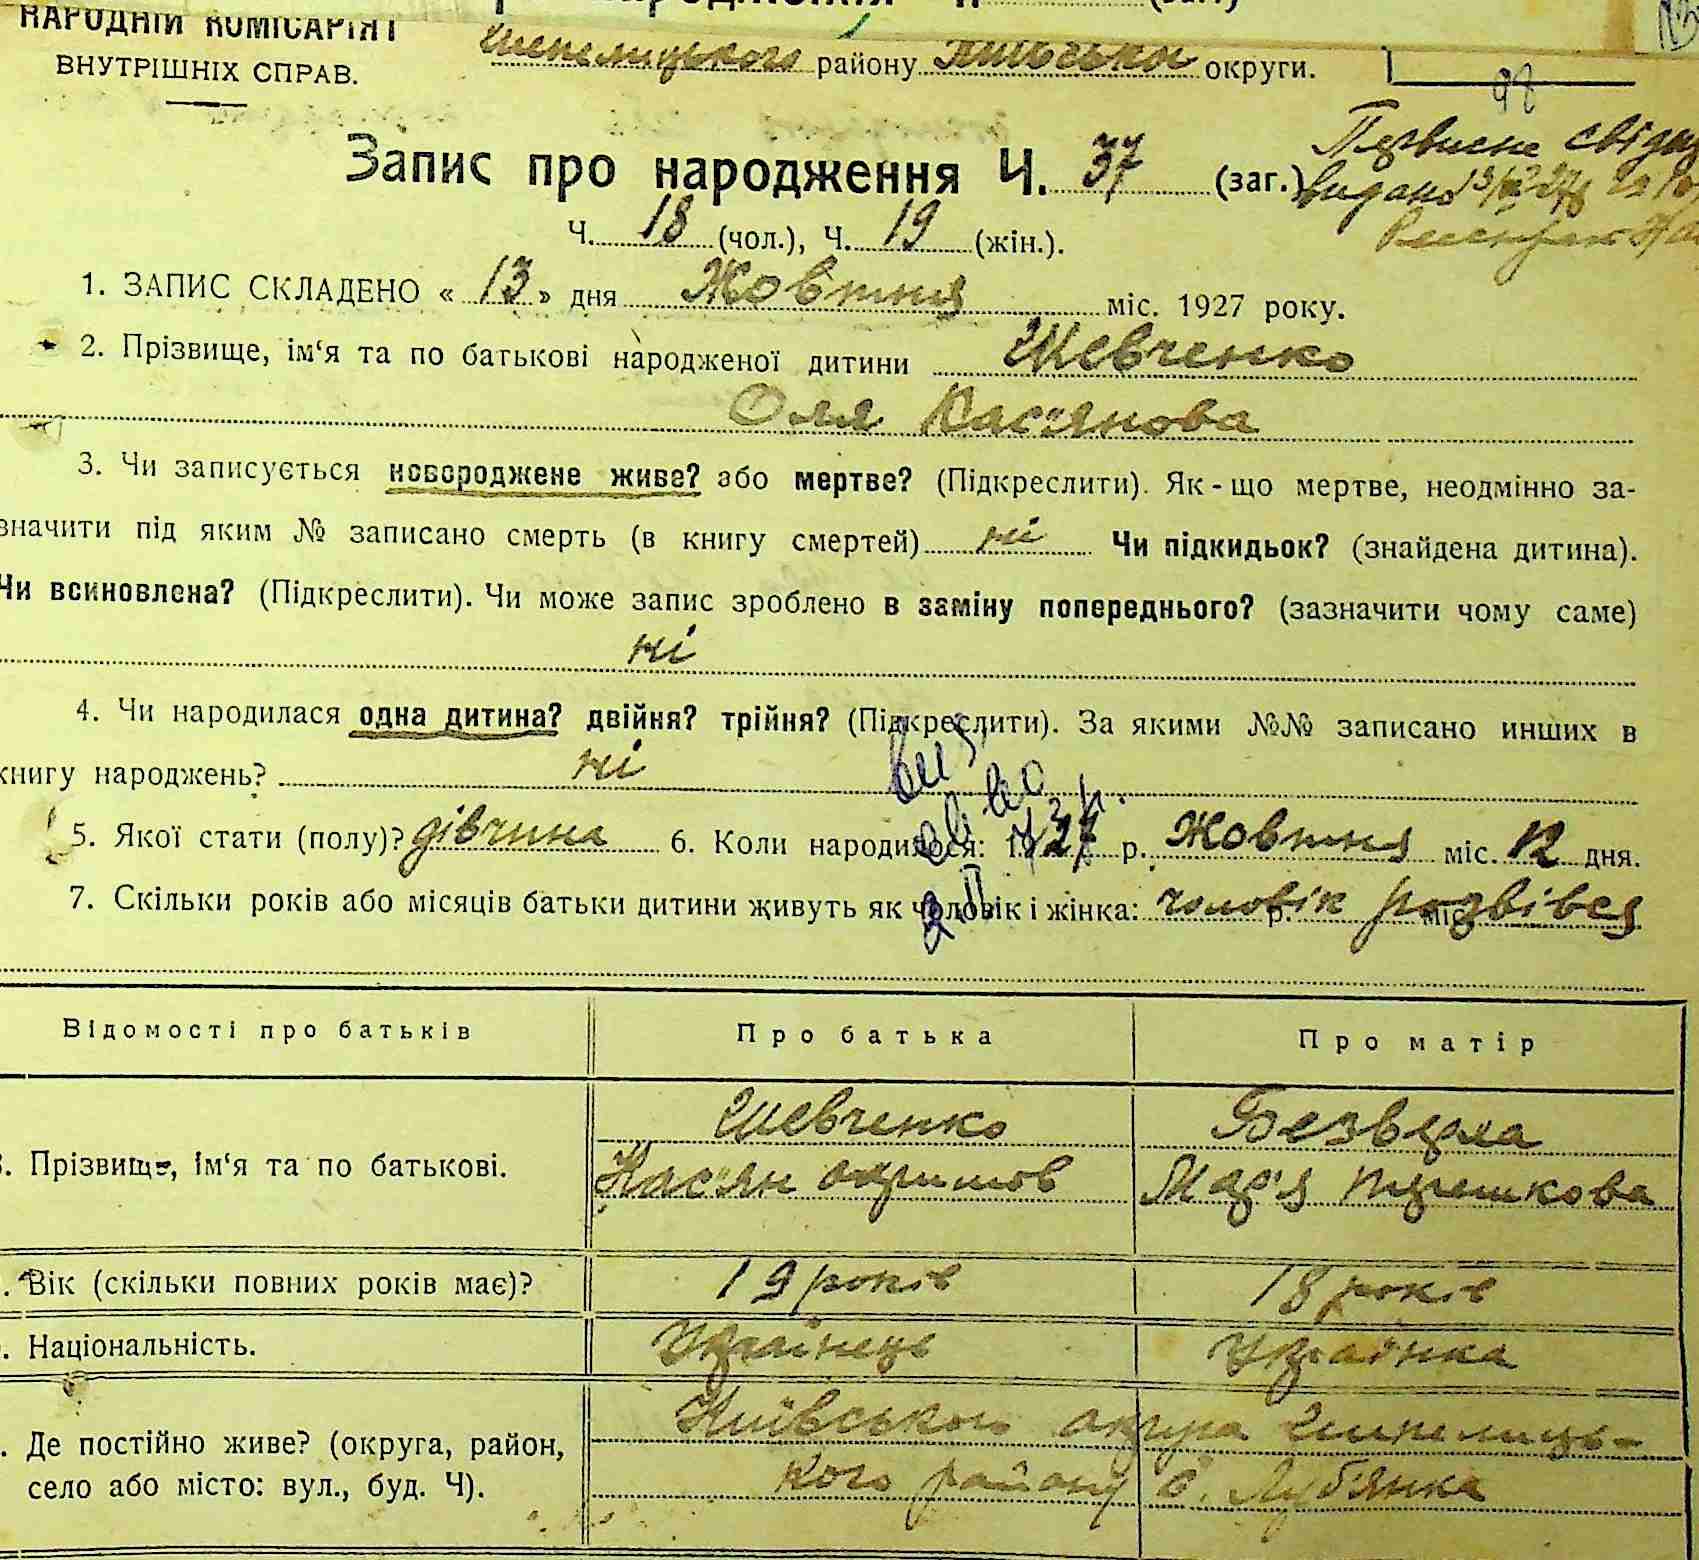 НАРОДНІЙ КОМІСАРІЯТ
ВНУТРІШНІХ СПРАВ.
Шепелицького району Київської округи.
98
Запис про народження Ч. 37 (заг.)
Первисне
видано
Ч. 18 (чол.), Ч. 19 (жін.).
1. ЗАПИС СКЛАДЕНО « 13 » дня Жовтня міс. 1927 року.
2. Прізвище, ім‘я та по батькові народженої дитини Шевченко
Оля Касʼянова
3. Чи записується новороджене живе? або мертве? (Підкреслити). Як-що мертве, неодмінно за-
значити під яким № записано смерть (в книгу смертей) ні Чи підкидьок? (знайдена дитина).
Чи всиновлена? (Підкреслити). Чи може запис зроблено в заміну попереднього? (зазначити чому саме)
ні
4. Чи народилася одна дитина? двійня? трійня? (Підкреслити). За якими №№ записано инших в
книгу народжень? ні
5. Якої стати (полу)? дівчина 6. Коли народилося: 1927 р. Жовтня міс. 12 дня.
7. Скільки років або місяців батьки дитини живуть як чоловік і жінка: р. міс. чоловік розвівся
Відомості про батьків Про батька Про матір
Шевченко Безверла
. Прізвище, ім‘я та по батькові. Касʼян Марʼя
. Вік (скільки повних років має)? 19 років 18 років
. Національність. Українець Українка
. Де постійно живе? (округа, район, Київського округа Шипелиць-
село або місто: вул., буд. Ч). кого району с. Лубʼянка